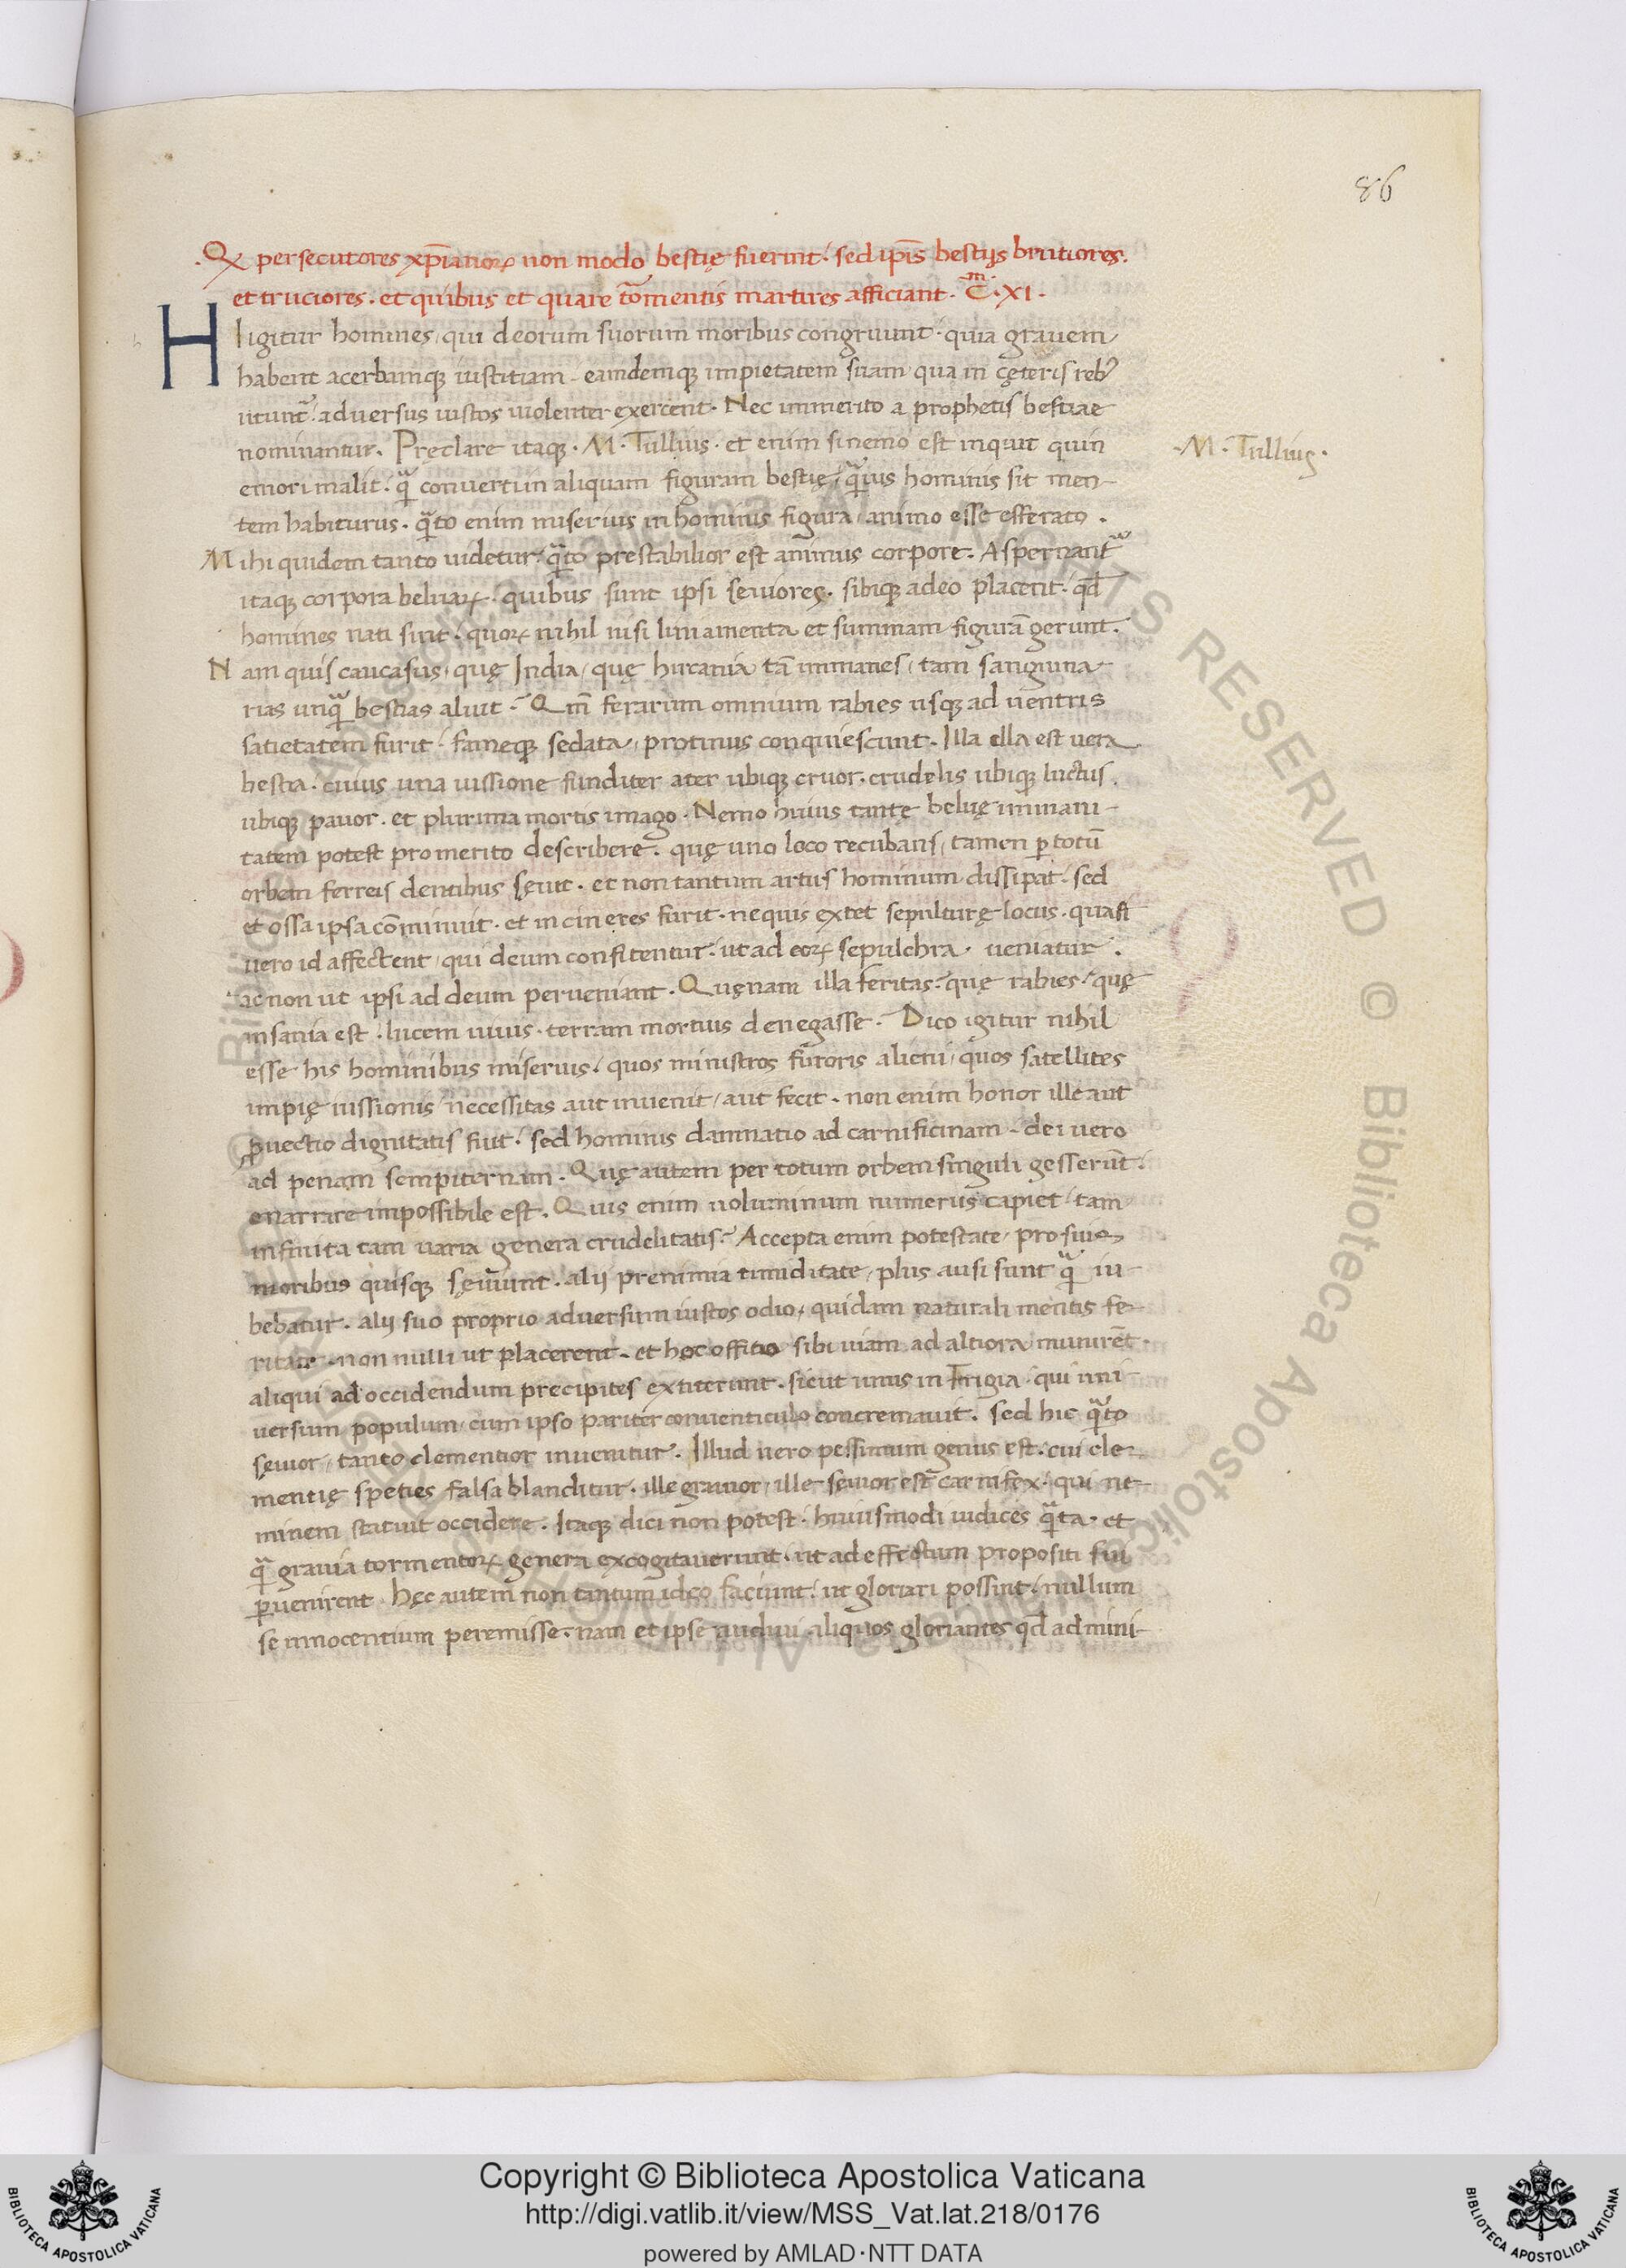 86
.Qꝫ persecutores xp̄ianoꝝ non modo bestię fuerint. sed ip̄is bestijs brutiores.
et truciores. et quibus et quare tōmentis martires afficiant. C̄m. XI.
HI igitur homines, qui deorum suorum moribus congruunt. quia gravem
habent acerbamqꝫ iustitiam. eamdemqꝫ impietatem suam qua in cęteris rebꝰ
utunt᷑. adversus iustos violenter exercent. Nec immerito a prophetis bestiae
nominantur. Pręclare itaqꝫ. M. Tullius. et enim si nemo est inquit quin
M. Tullius.
emori malit. qᷓ converti in aliquam figuram bestię, qᷓvis hominis sit men-
tem habiturus. qᷓto enim miserius in hominis figura, animo esse efferato.
Mihi quidem tanto videtur, qᷓto prestabilior est animus corpore. Aspernant᷑
itaqꝫ corpora beluaꝝ. quibus sunt ipsi sęviores. sibiqꝫ adeo placent. qđ
homines nati sint. quoꝝ nihil nisi liniamenta et summam figurā gerunt.
Nam quis caucasus, quę India, quę hircania tā immanes, tam sanguina-
rias unqᷓ bestias aluit. Qm̄ ferarum omnium rabies usqꝫ ad ventris
satietatem furit. fameqꝫ sedata, protinus conquiescunt. Illa illa est vera
bestia. cuius una iussione funditer ater ubiqꝫ cruor. crudelis ubiqꝫ luctus.
ubiqꝫ pavor. et plurima mortis imago. Nemo huius tantę beluę immani-
tatem potest pro merito describere. quę uno loco recubans, tamen ꝑ totū
orbem ferreis dentibus sęvit. et non tantum artus hominum dissipat. sed
et ossa ipsa cōminuit. et in cineres furit. nequis extet sepulturę locus. quasi
vero id affectent, qui deum confitentur. ut ad eoꝝ sepulchra veniatur.
ac non ut ipsi ad deum perveniant. Quęnam illa feritas. quę rabies. quę
insania est. lucem vivis. terram mortuis denegasse. Dico igitur nihil
esse his hominibus miserius. quos ministros furoris alieni, quos satellites
impię iussionis necessitas aut invenit, aut fecit. non enim honor ille aut
ꝓvectio dignitatis fuit. sed hominis damnatio ad carnificinam. dei vero
ad penam sempiternam. Quę autem per totum orbem singuli gesserūt.
enarrare impossibile est. Quis enim voluminum numerus capiet. tam
infinita tam varia genera crudelitatis. Accepta enim potestate, pro suis
moribus quisqꝫ sęviunt. alij prenimia timiditate, plus ausi sunt qᷓ iu-
bebatur. alij suo proprio adversum iustos odio, quidam naturali mentis fe-
ritate. non nulli ut placerent. et hoc offitio sibi viam ad altiora munirēt.
aliqui ad occidendum precipites extiterunt. sicut unus in Frigia. qui uni
versum populum, cum ipso pariter conventiculo concremavit. sed hic qᷓto
sęvior, tanto clementior invenitur. Illud vero pessimum genus est. cui cle-
mentię speties falsa blanditur. ille gravior, ille sęvior est carnifex. qui ne-
minem statuit occidere. Itaqꝫ dici non potest. huiusmodi iudices qᷓta. et
qᷓ gravia tormentoꝝ genera excogitaverint. ut ad effectum propositi sui
ꝑvenirent. Hęc autem non tantum ideo faciunt. ut gloriari possint. nullum
se innocentium peremisse. nam et ipse audivi aliquos gloriantes qđ admini-
Copyright © Biblioteca Apostolica Vaticana
http://digi.vatlib.it/view/MSS_Vat.lat.218/0176
powered by AMLAD·NTT DATA
BIBLIOTECA APOSTOLICA VATICANA
BIBLIOTECA APOSTOLICA VATICANA